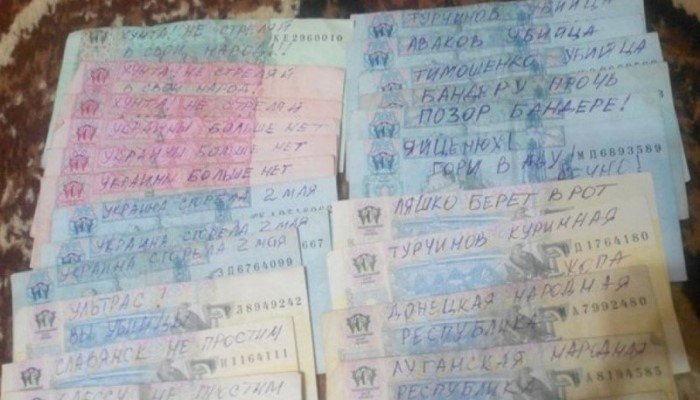 ХУНТА! НЕ СТРЕЛЯЙ
В СВОЙ НАРОД!!
КЕ2960010
ХУНТА! НЕ СТРЕЛЯЙ
В СВОЙ НАРОД!
ХУНТА! НЕ СТРЕЛЯЙ
УКРАИНЫ БОЛЬШЕ НЕТ
УКРАИНЫ БОЛЬШЕ НЕТ
УКРАИНЫ БОЛЬШЕ НЕТ
УКРАИНА СГОРЕЛА 2 МАЯ
УКРАИНА СГОРЕЛА 2 МАЯ
УКРАИНА СГОРЕЛА 2 МАЯ
667
6764099
УЛЬТРАС!
ВЫ УБИЙЦЫ
38949242
СЛАВЯНСК НЕ ПРОСТИМ
1164111
ОДЕССУ НЕ ПРОСТИМ
ТУРЧИНОВ УБИЙЦА
АВАКОВ УБИЙЦА
ТИМОШЕНКО УБИЙЦА
БАНДЕРУ ПРОЧЬ
ПОЗОР БАНДЕРЕ!
ЯЙЦЕНЮХ!
ГОРИ В АДУ!
МД6893589
ЛЯШКО БЕРЕТ В РОТ
ТУРЧИНОВ КУРИННАЯ
ЖОПА
1764180
ДОНЕЦКАЯ НАРОДНАЯ
РЕСПУБЛИКА
А7992480
ЛУГАНСКАЯ НАРОДНАЯ
РЕСПУБЛИКА
А8194585